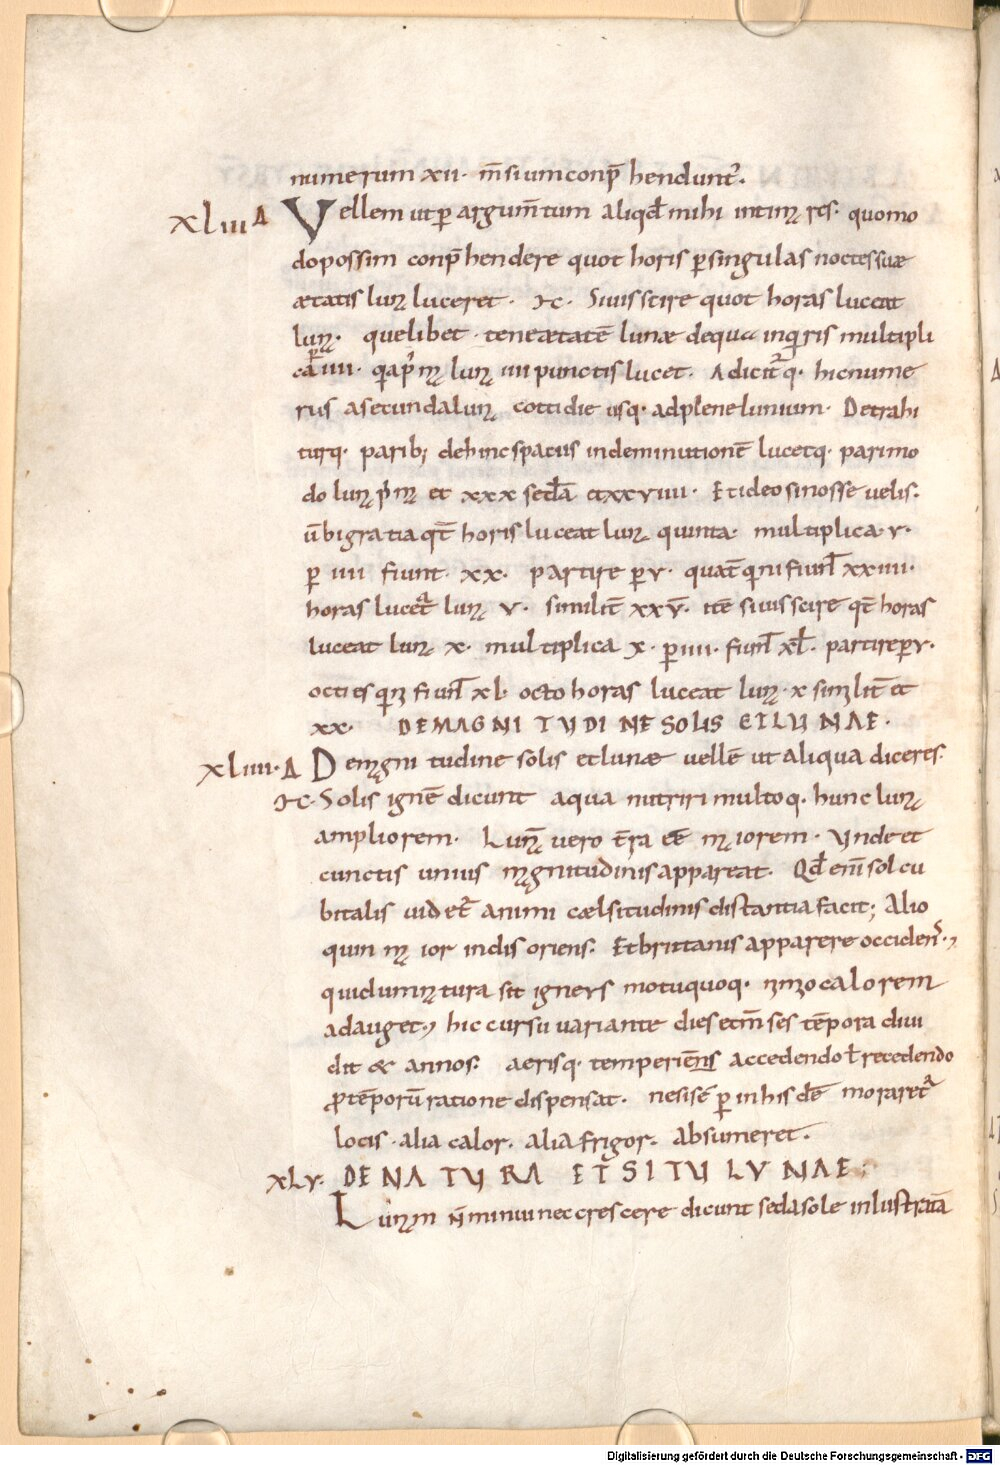 numerum xii· m̄sium conp̄hendunt᷑.
xliii Δ Vellem ut ꝑ argum̄tum aliqđ mihi intimares· quomo
do possim conp̄hendere quot horis ꝑ singulas noctes suae
aetatis luna luceret· Si uis scire quot horas luceat
luna· quelibet· tene aetatē lunae de qua inquiris multipli
ca ꝑ iiii· luna iiii punctis lucet· Adicit᷑q· hic nume
rus a secunda luna cottidie usq· ad plenelunium· Detrahi
turq· parib; dehinc spatiis in deminutionē lucetq· pari mo
do luna et xxx et xxviiii· Et ideo si nosse uelis·
ūbi gratia qt̄ horis luceat luna quinta· multiplica· v·
ꝑ iiii fiunt· xx· partire ꝑ v· xxiiii·
horas lucet luna v· similit̄ xxv· itē si uis scire qt̄ horas
luceat luna x· multiplica x· ꝑ iiii· fiunt xl· partire ꝑ v·
octies xl· octo horas luceat luna· x similit̄ et
xx· DE MAGNITUDINE SOLIS ET LUNAE·
xliiii· Δ De magnitudine solis et lunae uellē ut aliqua diceres·
Solis ignē dicunt aqua nutriri multoq· hunc luna
ampliorem· Lunā uero t̄ra eē maiorem· Vnde et
cunctis unius magnitudinis appareat· Qđ eni sol cu
bitalis uidet᷑ animi caelsitudinis distantia facit; Alio
quin maior indis oriens· Et brittanis apparere occidens·
qui dum natura sit igneus motu quoq· calorem
adauget, hic cursu uariante dies et m̄ses tēpora diui
dit & annos· aerisq· temperiēs accedendo ł recedendo
ꝓ tēporū ratione dispensat· ne si sēꝑ in hisdē moraret᷑
locis· alia calor· alia frigor· absumeret·
xlv· DE NATURA ET SITU LUNAE;
Lunam n̄ minui nec crescere dicunt sed a sole inlustratā
Digitalisierung gefördert durch die Deutsche Forschungsgemeinschaft - DFG